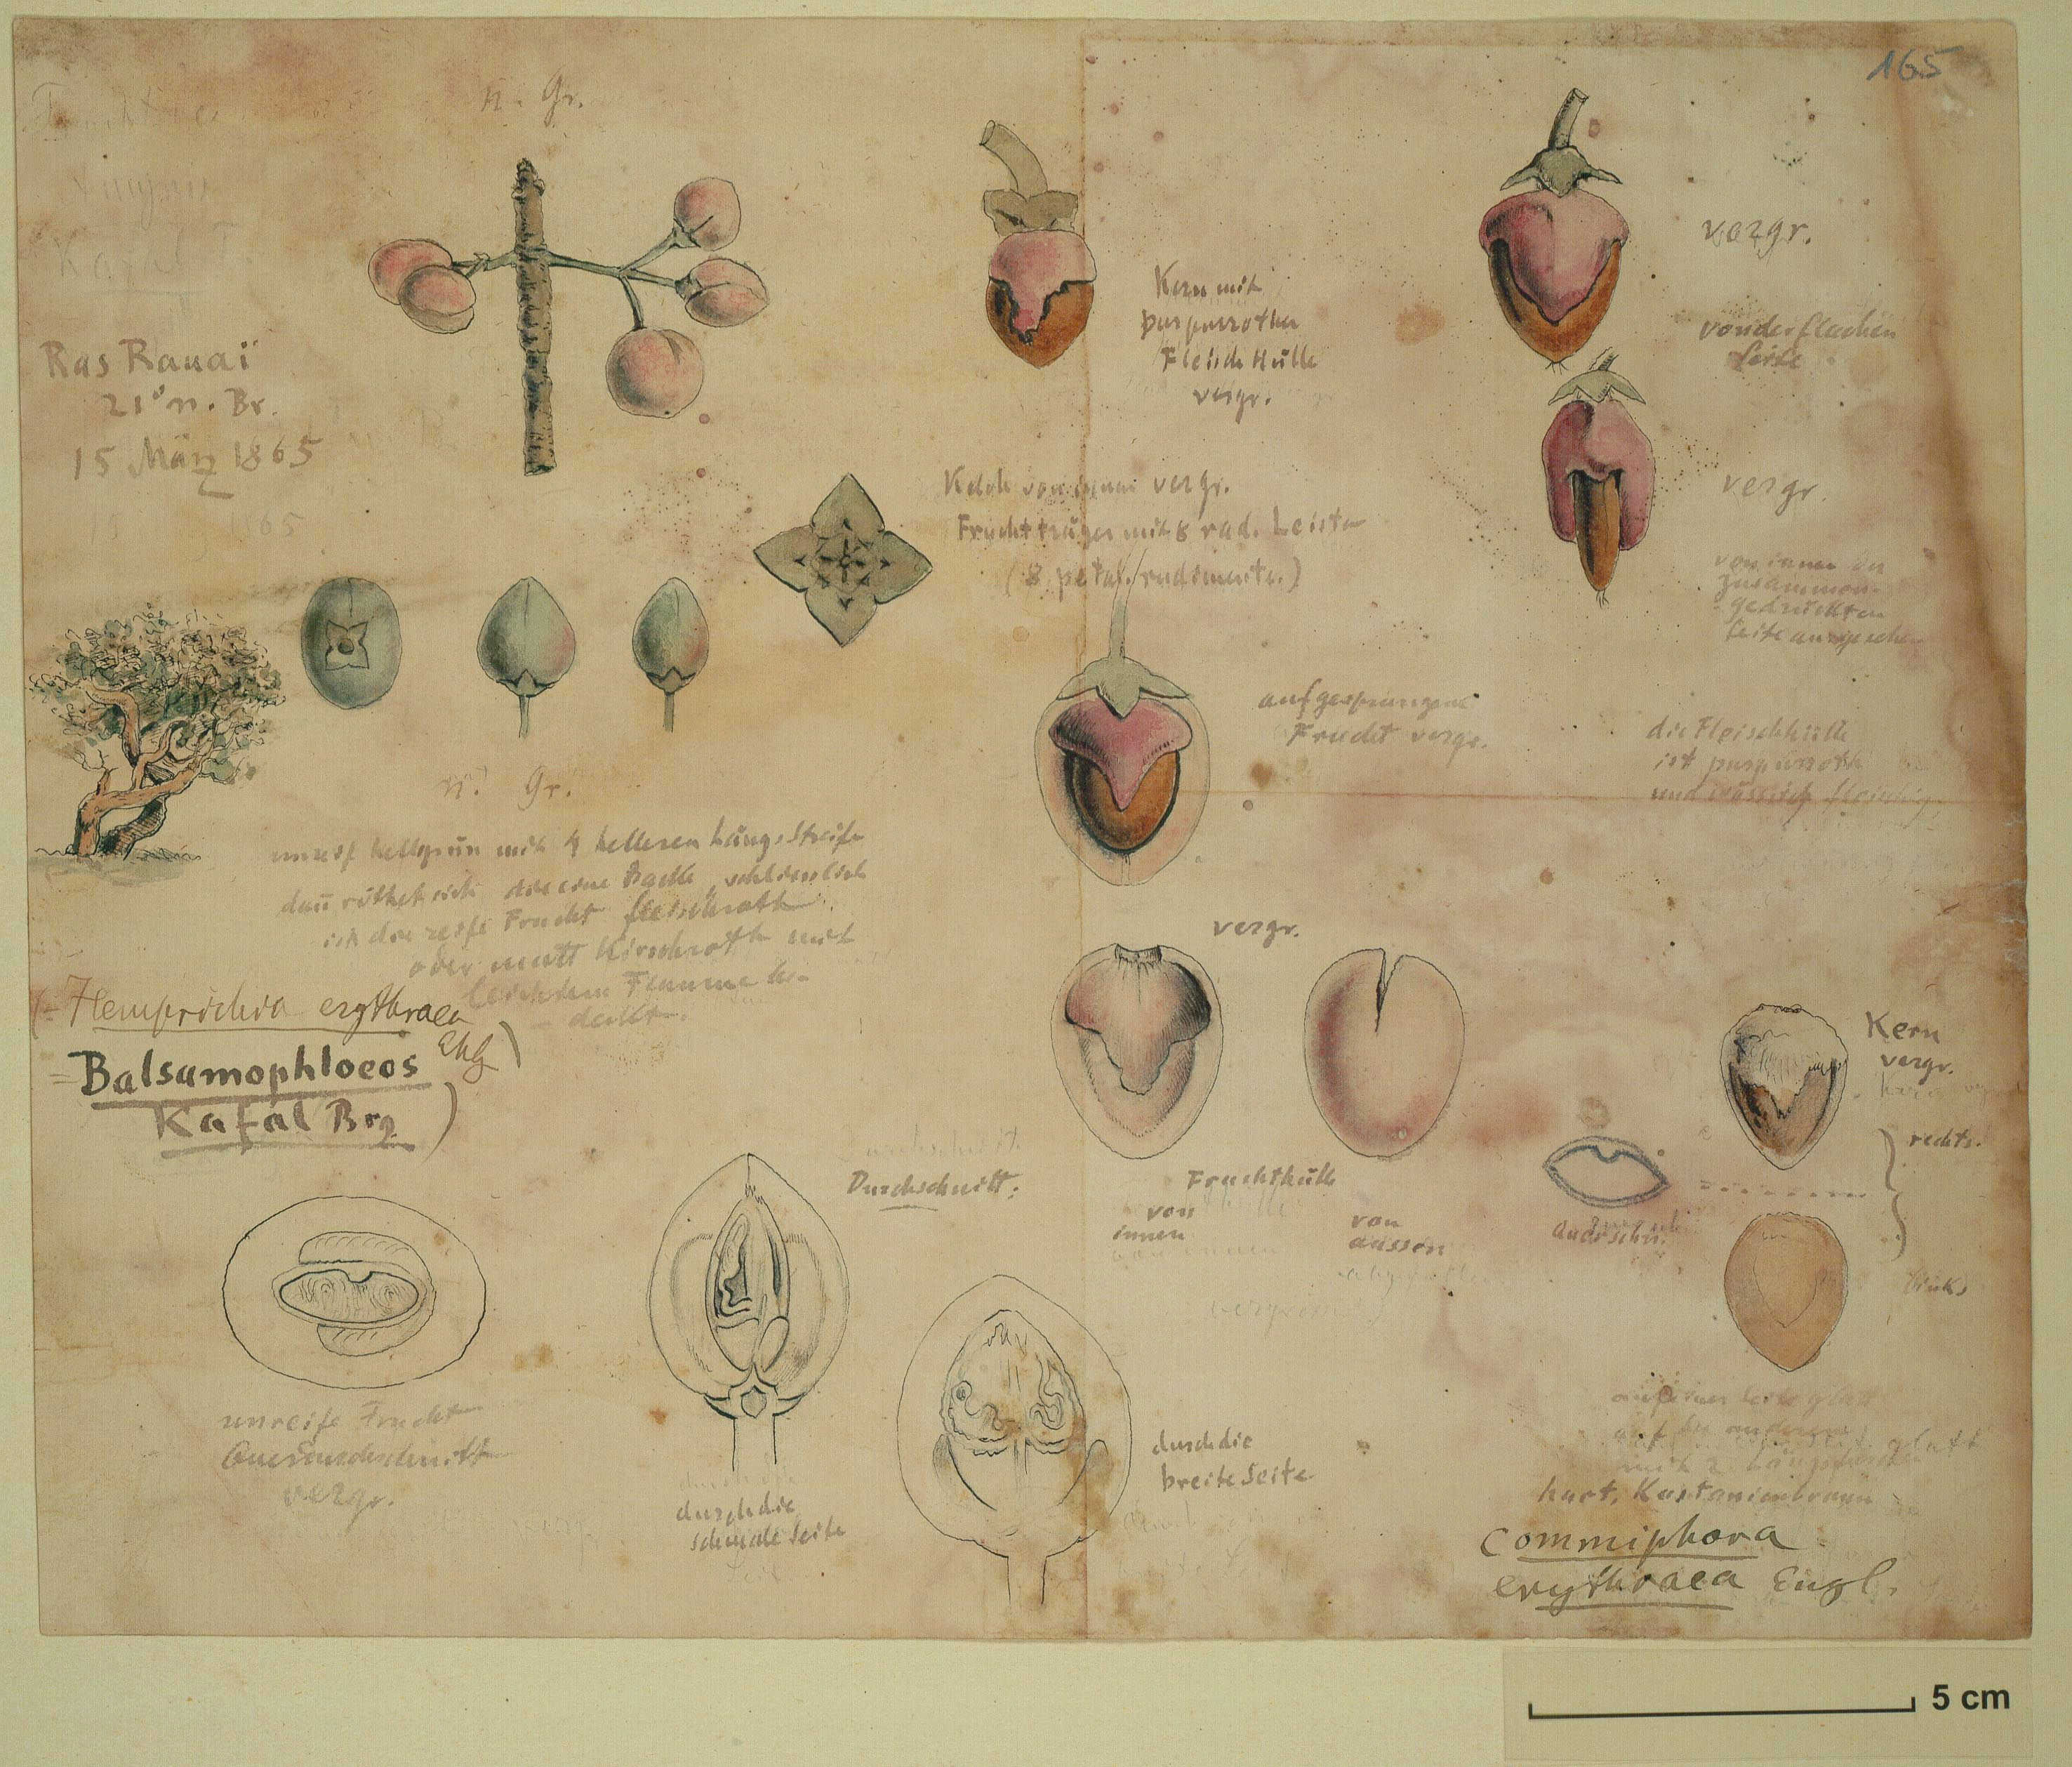 165
n. Gr.
Ras Rauaï
21° n. Br.
15 März 1865
15 1865
Kafal
Kern mit
purpurrother
Fleisch Hülle
vergr.
vergr.
von der flachen
Seite
vergr.
von innen der
zusammen-
gedrückten
Seite angesehen
Kelch von innen vergr.
Fruchtträger mit 8 rad. Leisten
(8 petal. rudimente.)
aufgesprungene
Frucht vergr.
die Fleischhülle
ist purpurroth
und wässrig fleischig
n. Gr.
unreif hellgrün mit 4 helleren Längsstreifen
dañ röthet sich die eine Backe, schliesslich
ist die reife Frucht fleischroth
oder matt Kirschroth mit
leichtem Flaume be-
deckt.
(= Hemprichia erythraea
Ehbg)
= Balsamophloeos
Kafal Brg )
vergr.
Fruchthülle
von
innen
von
aussen
Kern
vergr.
rechts.
links
Querschn.
Durchschnitt:
unreife Frucht
Querdurchschnitt
vergr.
durch die
schmale Seite
durch die
breite Seite
auf einer Seite glatt
auf der anderen
mit 2 glatt
hart, Kastanienbraun
Commiphora
erythraea Engl.
5 cm